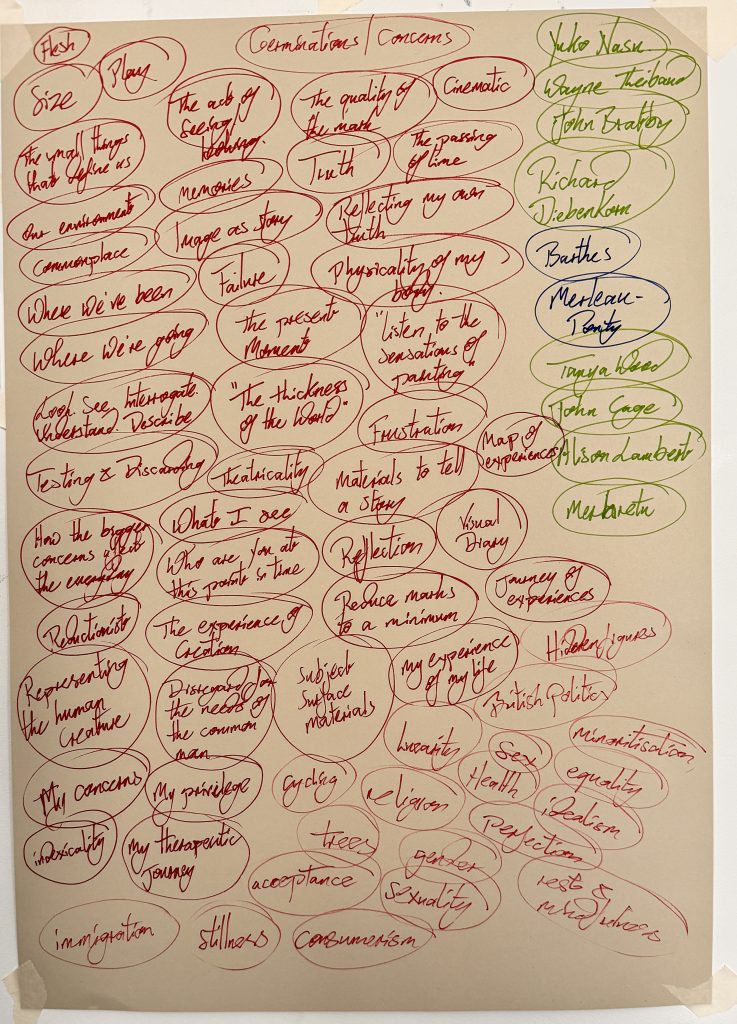 Germinations/Concerns
Flesh
Size
Play
The act of
Seeing/
looking.
The quality of
the mark
Cinematic
The small things
that define us
Memories
Truth
The passing
of time
Our environment
Image as story
Reflecting my own
truth
Commonplace
Failure
Physicality of my
body.
Where we've been
The present
Moment
"Listen to the
sensations of
painting"
Where we're going
Look. See. Interrogate.
Understand. Describe
"The thickness
of the World"
Frustration
Map of
experiences
Testing & Discarding
Theatricality
Materials to tell
a story
What I see
Visual
Diary
How the bigger
concerns affect
the everyday
Who are you at
this point in time
Reflection
Journey of
experiences
Reductionist
The experience of
Creation
Reduce marks
to a minimum
Hidden figures
Representing
the human
Creature
Disregard for
the needs of
the common
man
Subject
Surface
Materials
My experience
of my life
British Politics
Linearity
Sex
Health
minoritisation
equality
My concerns
My privilege
Cycling
religion
idealism
perfection
indexicality
My therapeutic
Journey
trees
gender
acceptance
Sexuality
rest &
mindfulness
immigration
stillness
Consumerism
Yuko Nasu
Wayne Theibaud
John Bratby
Richard
Diebenkorn
Barthes
Merleau-
Ponty
Tanya Wood
John Cage
Alison Lambert
Merhretu